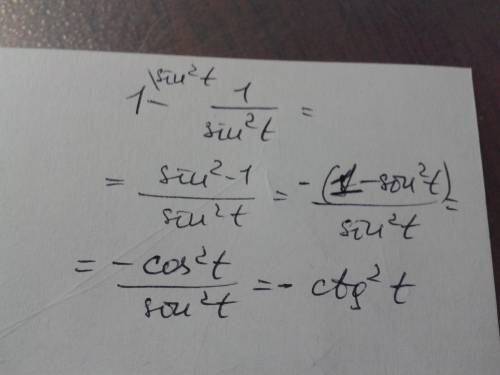 1 -\sin²t 1/sin²t =
= sin² - 1/sin²t = -(1 - sin²t)/sin²t =
= -cos²t/sin²t = - ctg² t